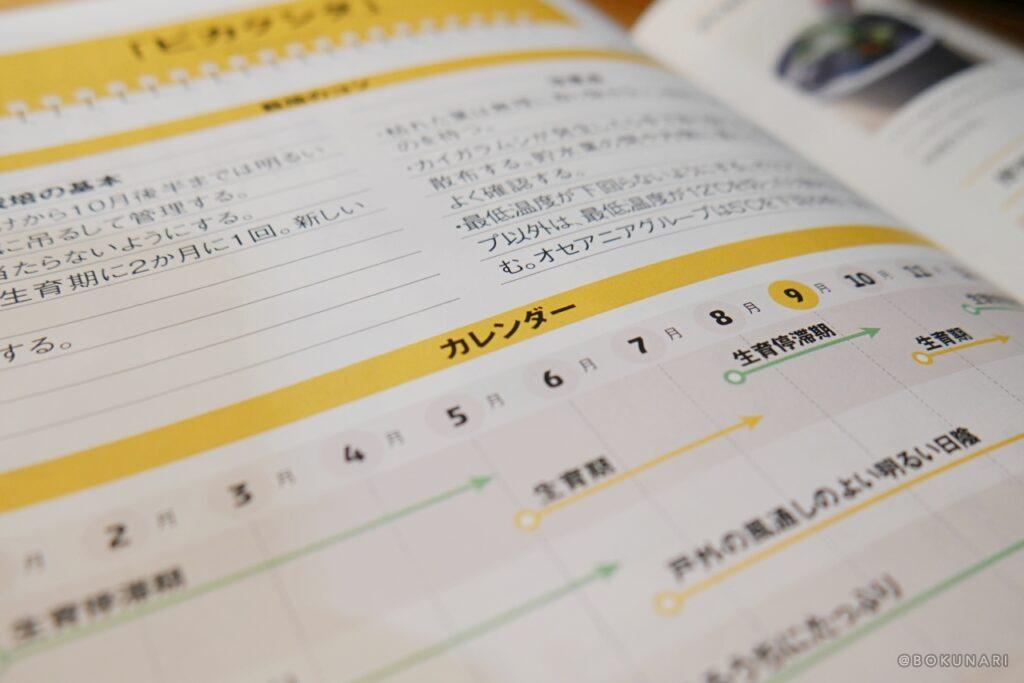 「ビカクシダ」
栽培のコツ
栽培の基本
から10月後半までは明るい
に吊るして管理する。
当たらないようにする。
生育期に2か月に1回。新しい
する。
・枯れた葉は無理に
のを待つ。
・カイガラムシが発生し
散布する。貯水葉の
よく確認する。
・最低温度が下回らないように
プ以外は、最低温度が12℃を
む。オセアニアグループは5℃を下
カレンダー
月 2月 3月 4月 5月 6月 7月 8月 9月 10月 11
生育停滞期 生育期 生育停滞期 生育期
戸外の風通しのよい明るい日陰
うちにたっぷり
@BOKUNARI